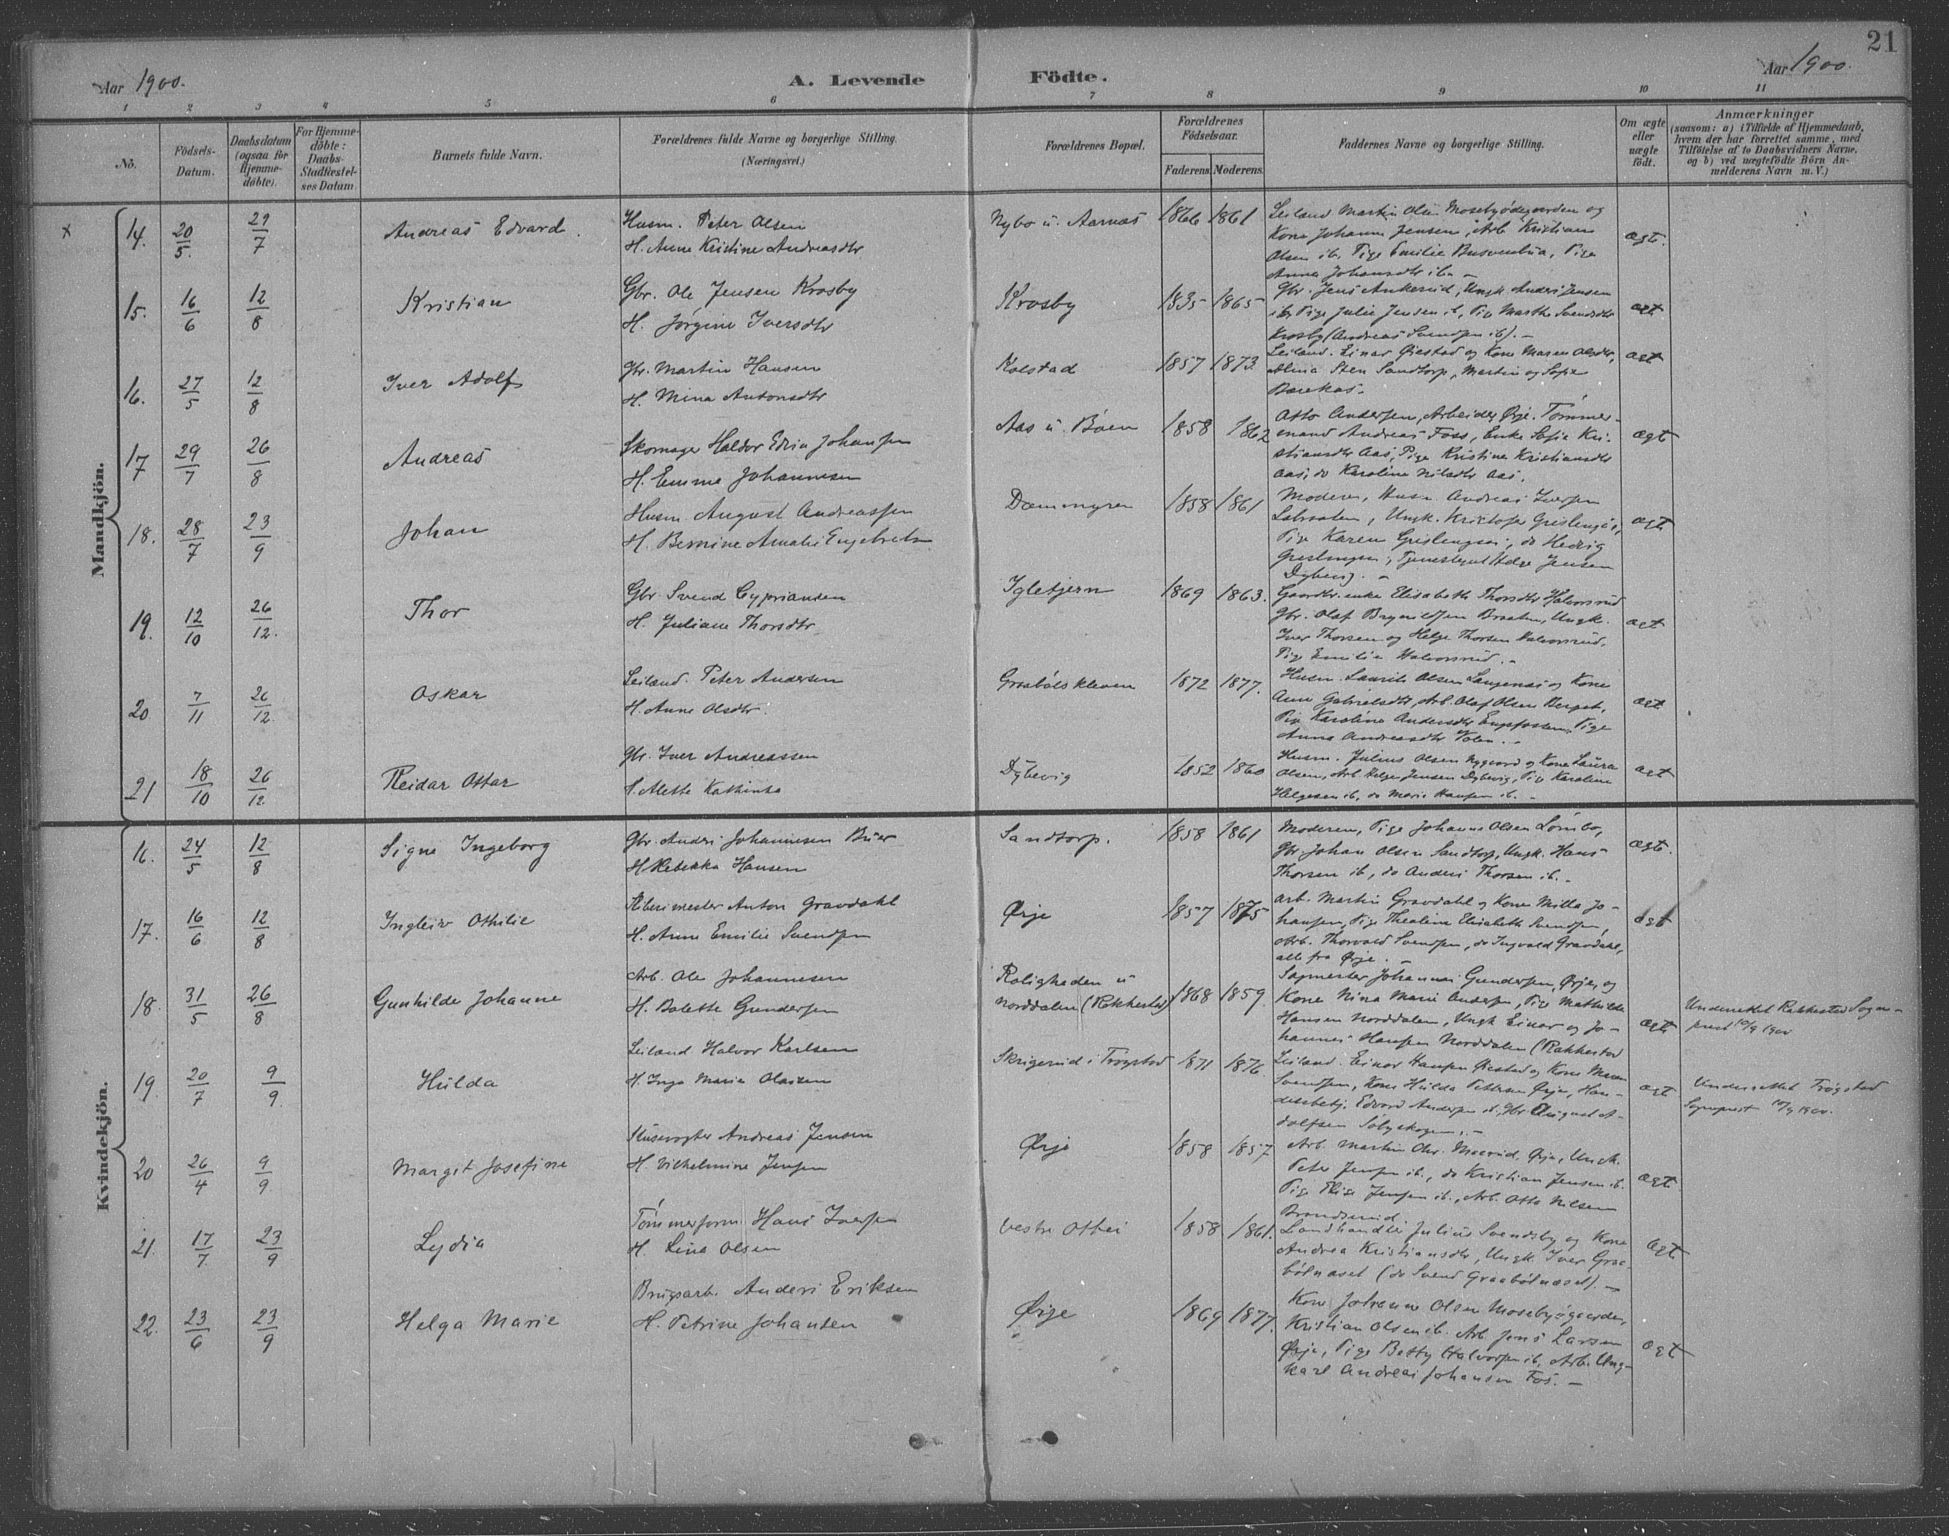 21
Aar 1900. A. Levende Födte. Aar 1900.
1 2 3 4 5 6 7 8 9 10 11
No.
Födsels-Datum.
Daabsdatum (ogsaa for Hjemme-döbte).
For Hjemme-döbte: Daabs-Stadfæstel-ses Datum.
Barnets fulde Navn.
Forældrenes fulde Navne og borgerlige Stilling.
(Næringsvei.)
Forældrenes Bopæl.
Forældrenes Födselsaar.
Faderens. Moderens.
Faddernes Navne og borgerlige Stilling.
Om ægte eller uægte födt.
Anmærkninger
(saasom: a) i Tilfælde af Hjemmedaab,
hvem der har forrettet samme, med
Tilföielse af to Daabsvidners Navne,
og b) ved uægtefödte Börn An-
melderens Navn m. V.)
Mandkjön.
x 14. 20/5. 29/7 Andreas Edvard. Husm. Peter Olsen
H. Anne Kristine Andreasdtr
Nybo u. Aarnæs 1866 1861
Leiland Martin Olsen Mosebyødegaarden og
Kone Johanne Jensen, Arb. Kristian
Olsen ib. Pige Emilie Pige
Anna Johansdtr ib. –
ægt.
15. 16/6 12/8 Kristian Gbr. Ole Jensen Krosby
H. Jørgine Iversdtr
Krosby 1835 1865
Gbr. Jens Ankerud, Ungk. Anders Jensen
ib, Pige Julie Jensen ib, Pige Marthe Svendsdtr
Krosby (Andreas Svendsen ib). –
ægt
16. 27/5 12/8 Iver Adolf Gbr. Martin Hansen
H. Mina Antonsdtr
Kolstad 1857 1873.
Leiland. Einar Øiestad og Kone Maren Olsdtr,
Alma Sten Sandtorp, Martin og Sofie
ægt
17 29/7 26/8 Andreas Skomager Haldor Edin Johansen
H. Emma Johannesen
Aas u. Böen 1858 1862
Otto Andersen, Arbeider Ørje. Tømmer-
mand Andreas Foss, Enke Sofie Kri-
stiansdtr Aas, Pige Kristine Kristiansdtr
Aas; do Karoline Nilsdtr Aas.
ægt
18. 28/7 23/9 Johan Husm August Andreassen
H. Bernine Amalie Engebrets
Dammyren 1858 1861
Moderen, Husm. Andreas Iversen
Ungk. Kristofer
Pige Karen do Hedvig
Helge Jensen
Dybevig. –
ægt
19. 12/10 26/12. Thor Gbr. Svend Cypriansen
H. Juliane Thorsdtr
Igletjern 1869 1863.
Gaardbr. enke Elisabeth Thorsdtr Halvorsrud
Gbr. Olaf Brynildsen Braaten, Ungk.
Iver Thorsen og Helge Thorsen Halvorsrud,
Pige Emilie Halvorsrud. –
ægt
20 7/11 26/12. Oskar Leiland. Peter Andersen
H. Anne Olsdtr.
Graabölskleven 1872 1877.
Husm. Laurits Olsen Langenæs og Kone
Anne Gabrielsdtr, Arb. Olaf Olsen Berget,
Pige Karoline Andersdtr Engefossen, Pige
Anna Andreasdtr Volen. –
ægt
21 18/10 26/12. Reidar Ottar Gbr. Iver Andreassen
H. Alette Kathinka
Dybevig 1852 1860
Husm. Julius Olsen Nygaard og Kone Laura
Olsen, Arb. Helge Jensen Dybevig, Pige Karoline
Helgesen ib, do Marie Hansen ib. –
ægt
Kvindekjön.
16. 24/5 12/8 Signe Ingeborg Gbr. Anders Johannesen Buer
H. Rebekka Hansen
Sandtorp. 1858 1861
Moderen, Pige Johanne Olsen Lømbo,
Gbr. Johan Olsen Sandtorp, Ungk. Hans
Thorsen ib, do Anders Thorsen ib. –
ægt.
17. 16/6 12/8 Ingleiv Othilie Anton Gravdahl
H. Anne Emilie Svendsen
Ørje 1857 1875
Arb. Martin Gravdahl og Kone Milla Jo-
hansen, Pige Thealine Elisabeth Svendsen,
Arb. Thorvald Svendsen, do Ingvald Gravdahl,
alle fra Ørje. –
ægt
18. 31/5 26/8 Gunhilde Johanne Arb. Ole Johannesen
H. Bolette Gundersen
Roligheden u
Norddalen (Rakkestad) 1868 1859.
Sagmester Johannes Gundersen, Ørje, og
Kone Nina Marie Andersen, Pige Mathilde
Hansen Norddalen, Ungk. Einar og Jo-
hannes Hansen Norddalen (Rakkestad
ægt
Underrettet Rakkestad Sogne-
prest 10/9 1900
19. 20/7 9/9 Hulda Leiland Halvor Karlsen
H. Inga Marie Olausen
Skrigerud i Trøgstad 1871 1876.
Leiland. Einar Hansen Øiestad og Kone Maren
Svendsen, Kone Hulda Pettersen Ørje, Han-
delsbetj. Edvard Andersen ib. Gbr. August A-
dolfsen –
ægt
Underrettet Trøgstad
Sogneprest 10/9 1900.
20 26/4 9/9 Margit Josefine Slusevogter Andreas Jensen
H. Vilhelmine Jensen
Ørje 1858 1857
Arb. Martin Chr. Ørje, Ungk.
Peter Jensen ib., do Kristian Jensen ib.
Pige Elise Jensen ib., Arb. Otto Nilsen
ægt
21. 17/7 23/9 Lydia Tømmerform. Hans Iversen
H. Lina Olsen
Vestre Otteid 1858 1861.
Landhandler Julius Svendsby og Kone
Andrea Kristiansdtr, Ungk. Iver Graa-
bölnæset (do Svend Graabölnæset). –
ægt
22. 23/6 23/9 Helga Marie Brugsarb. Anders Eriksen
H. Petrine Johansen
Ørje 1869 1877.
Kone Johanne Olsen Mosebyøgaarden,
Kristian Olsen ib. Arb. Jens Larsen
Ørje, Pige Betty Halvorsen ib. Arb. Ung-
karl Andreas Johansen Fos. –
ægt